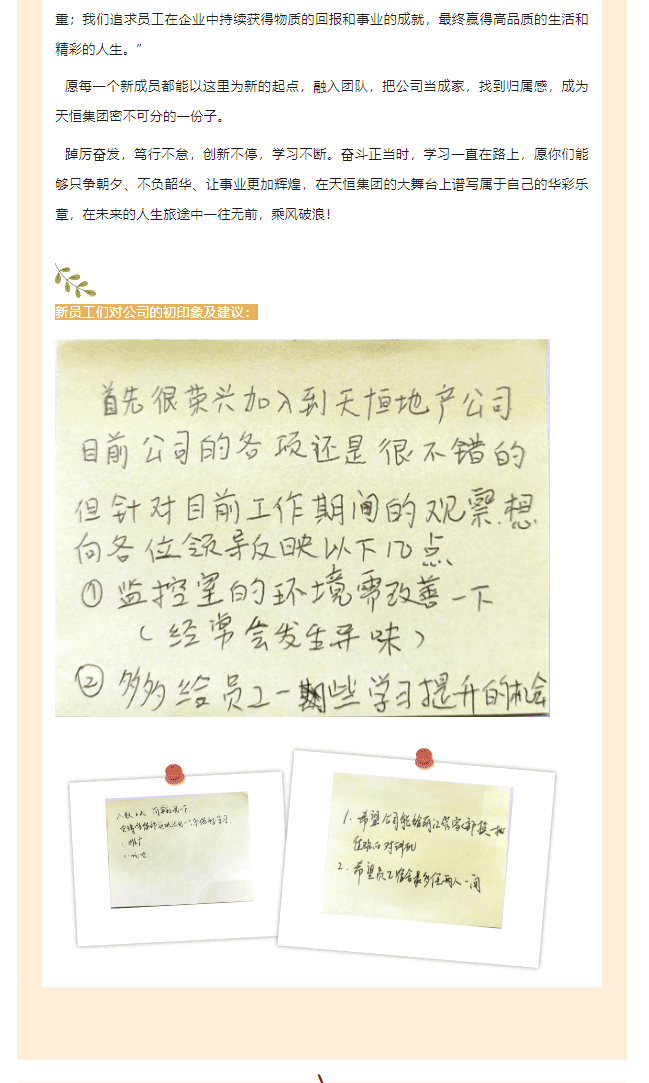 重；我们追求员工在企业中持续获得物质的回报和事业的成就，最终赢得高品质的生活和
精彩的人生。”
愿每一个新成员都能以这里为新的起点，融入团队，把公司当成家，找到归属感，成为
天恒集团密不可分的一份子。
踔厉奋发，笃行不怠，创新不停，学习不断。奋斗正当时，学习一直在路上，愿你们能
够只争朝夕、不负韶华、让事业更加辉煌，在天恒集团的大舞台上谱写属于自己的华彩乐
章，在未来的人生旅途中一往无前，乘风破浪！
新员工们对公司的初印象及建议：
首先很荣兴加入到天恒地产公司
目前公司的各项还是很不错的
但针对目前工作期间的观察.想
向各位领导反映以下几点
①监控室的环境需改善一下
（经常会发生异味）
②多多给员工一些学习提升的机会
1. 希望公司能给
住 的对讲机
2. 希望员工宿舍最多住两人一间